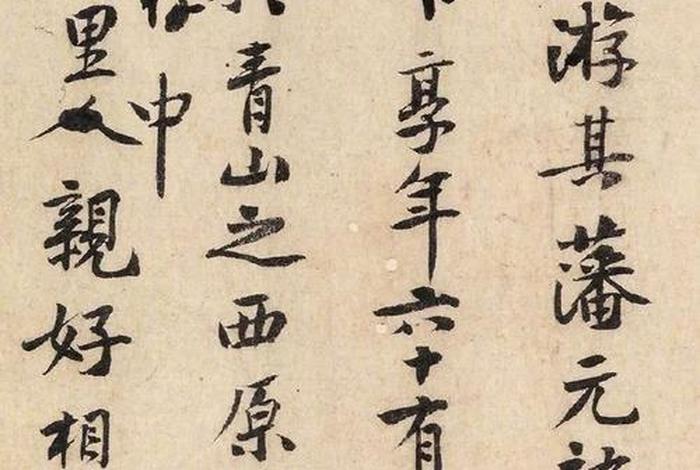 游其藩元祐
享年六十有
青山之西原
中
里人親好相